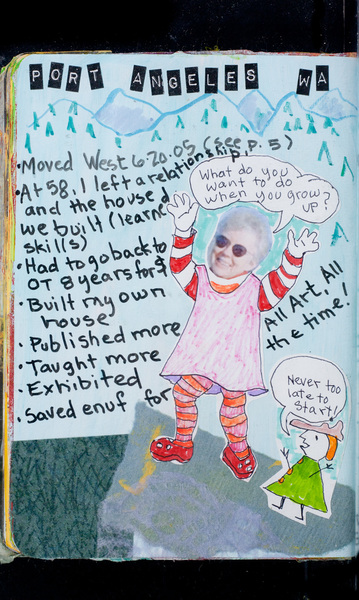 PORT ANGELES WA
• Moved West 6-20-05 (see p. 5)
• At 58, I left a relationship,
and the house
we built (learned
skills)
• Had to go back to
OT 8 years for $
• Built my own
house
• Published more
• Taught more
• Exhibited
• Saved enuf for
What do you
want to do
when you grow
UP?
All Art, All
the time!
Never too
late to
Start!